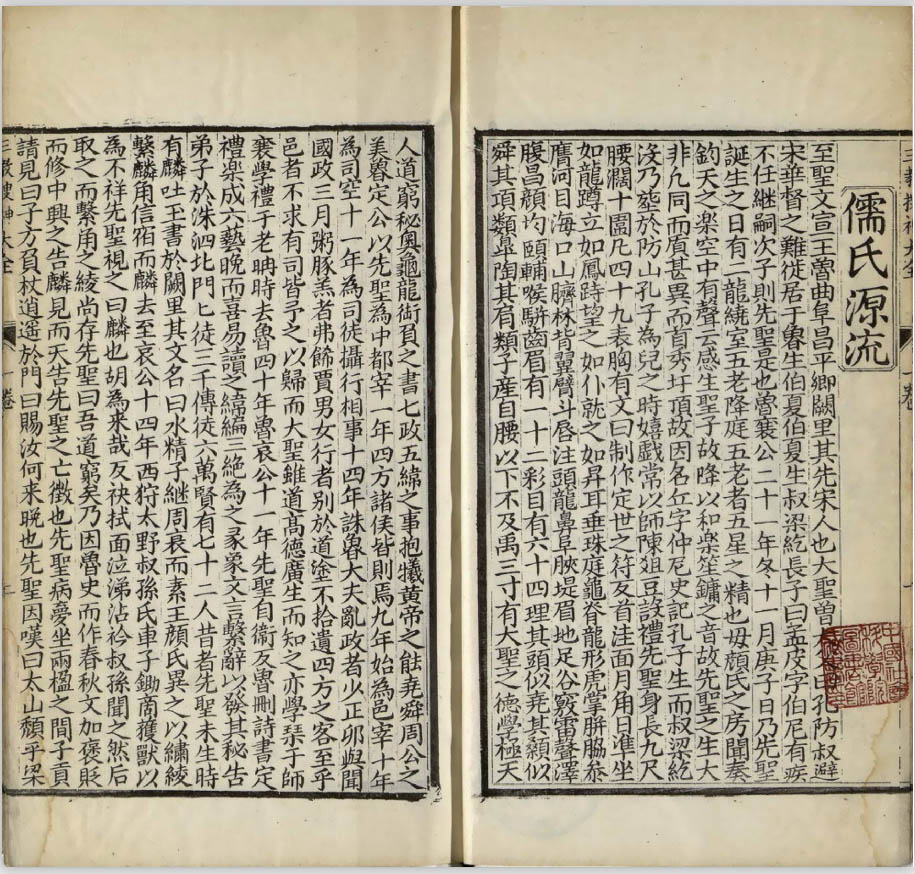 儒氏源流
至聖文宣王魯曲阜昌平鄉闕里其先宋人也大聖曾孔防叔避
宋華督之難徙居于魯生伯夏伯夏生叔梁紇長子曰孟皮字伯尼有疾
不任継嗣次子則先聖是也魯襄公二十一年冬十一月庚子日乃先聖
誕生之日有二龍繞室五老降庭五老者五星之精也毋顏氏之房聞奏
鈞天之楽空中有聲云感生聖子故降以和楽笙鏞之音故先聖之生大
非凡同而質甚異而首秀圩頂故因名丘字仲尼史記孔子生而叔梁紇
沒乃葬於防山孔子為兒之時嬉戯常以師陳俎豆設禮先聖身長九尺
腰濶十圍凡四十九表胸有文曰制作定世之符反首洼面月角日準坐
如龍蹲立如鳳跱望之如仆就之如昇耳垂珠庭龜脊龍形虎掌胼脇叅
膺河目海口山臍林背翼臂斗唇注頭龍鼻阜脥堤眉地足谷竅雷聲澤
腹昌顏均頤輔喉駢齒眉有一十二彩目有六十四理其頭似堯其顙似
舜其項類臯陶其肩類子産自腰以下不及禹三寸有大聖之德學極天
人道窮秘奥龜龍衘負之書七政五緯之事抱犧黄帝之能堯舜周公之
美魯定公以先聖為中都宰一年四方諸侯皆則焉九年始為邑宰十年
為司空十一年為司徒攝行相事十四年誅魯大夫亂政者少正卯與聞
國政三月粥豚羔者弗餙賈男女行者别於道塗不拾遺四方之客至乎
邑者不求有司皆予之以歸而大聖雖道髙德廣生而知之亦學琴子師
襄學禮于老聃時去魯四十年魯哀公十一年先聖自衞反魯刪詩書定
禮楽成六藝晚而喜易讀之緯編三絶為之彖象文言繫辭以發其秘告
弟子於洙泗北門匕徒三千傳徒六萬賢有七十二人昔者先聖未生時
有麟吐玉書於闕里其文名曰水精子継周衰而素王顏氏異之以繡綾
繫麟角信宿而麟去至哀公十四年西狩太野叔孫氏車子鋤商獲獸以
為不祥先聖視之曰麟也胡為来哉反袂拭面泣涕沾衿叔孫聞之然后
取之而繫角之綾尚存先聖曰吾道窮矣乃因魯史而作春秋文加褒貶
而修中興之告麟見而天告先聖之亡徴也先聖病憂坐兩楹之間子貢
請見曰子方負杖逍遥於門曰賜汝何来晚也先聖因嘆曰太山頹乎梁